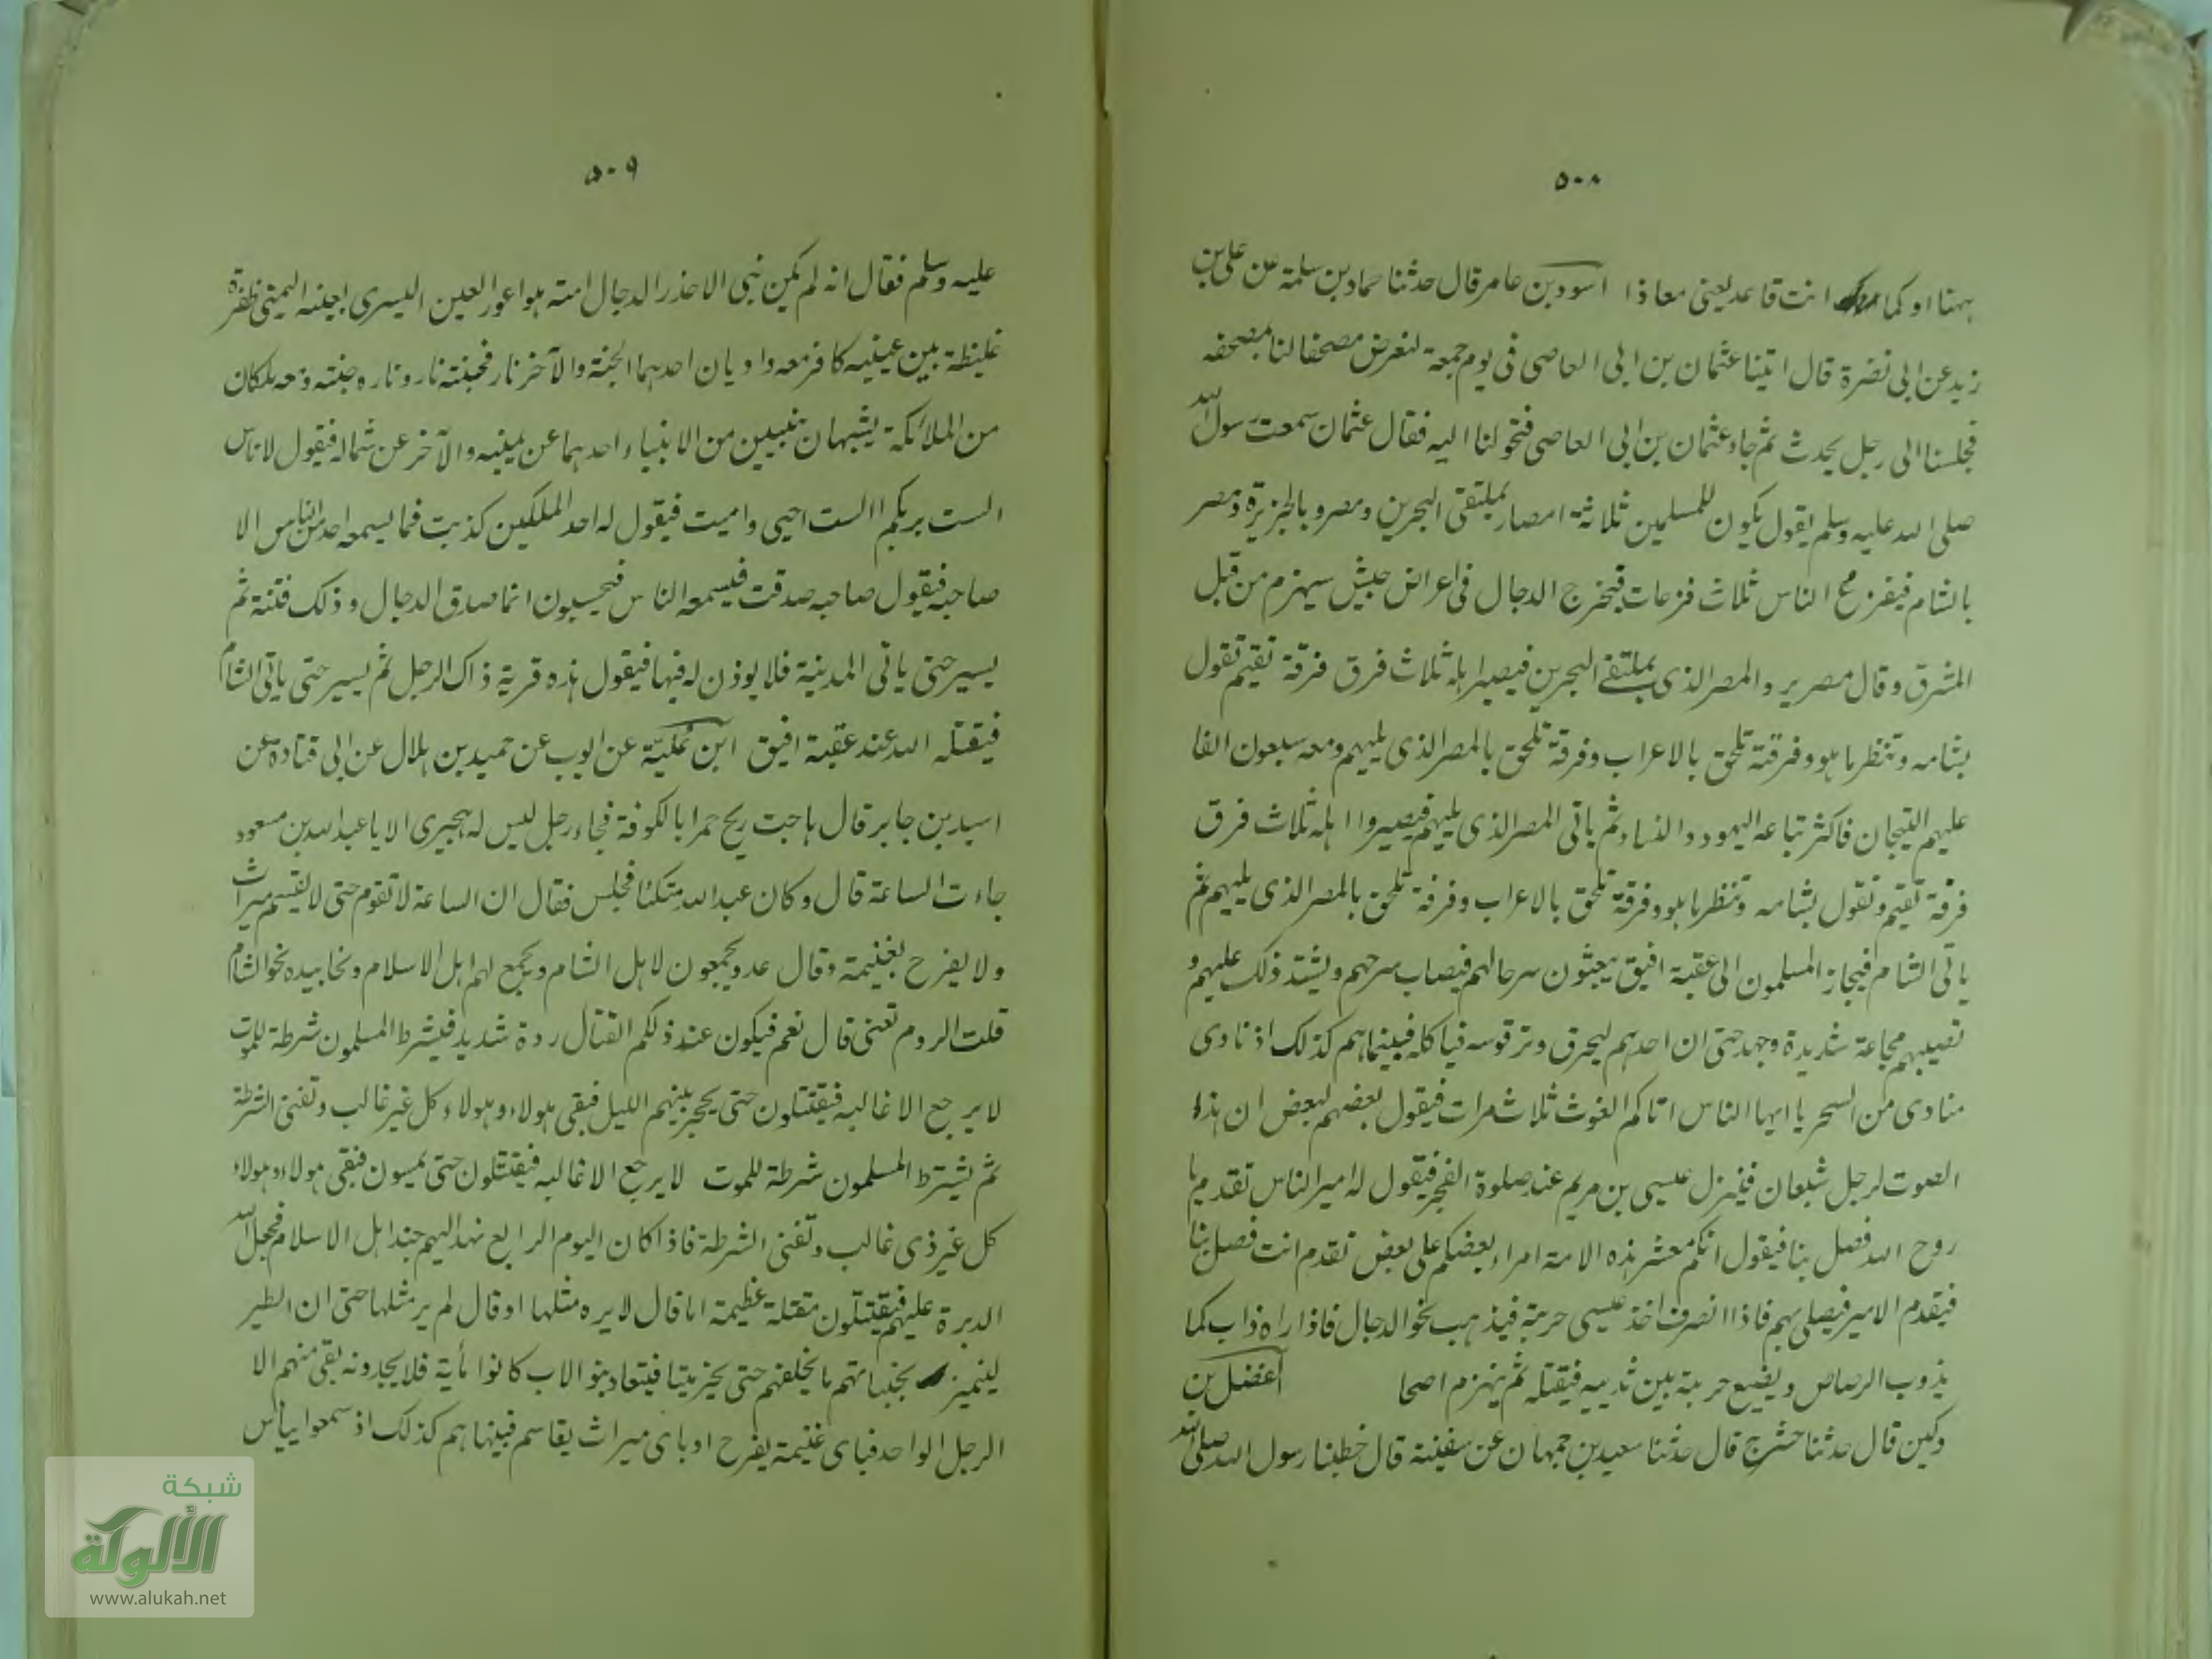 ٥٠٨
ههنا او كما انت قاعد يعنى معاذا اسود بن عامر قال حدثنا حماد بن سلمة عن على بن
زيد عن ابى نضرة قال اتينا عثمان بن ابى العاصى فى يوم جمعة لنعرض مصحفا لنا بمصحفه
فجلسنا الى رجل يحدث ثم جاء عثمان بن ابى العاصى فتحولنا اليه فقال عثمان سمعت رسول الله
صلى الله عليه وسلم يقول يكون للمسلمين ثلاثة امصار بملتقى البحرين ومصر بالجزيرة ومصر
بالشام فيفزع الناس ثلاث فزعات فيخرج الدجال فى اعراض جيش سيهزم من قبل
المشرق وقال مصر يرد المصر الذى بملتقى البحرين فيصير اهله ثلاث فرق فرقة تقيم تقول
نشامه وننظر ما هو وفرقة تلحق بالاعراب وفرقة تلحق بالمصر الذى يليهم ومعه سبعون الفا
عليهم التيجان فاكثر تباعه اليهود والنساء ثم ياتى المصر الذى يليهم فيصيروا اهله ثلاث فرق
فرقة تقيم وتقول نشامه وننظر ما هو وفرقة تلحق بالاعراب وفرقة تلحق بالمصر الذى يليهم ثم
ياتى الشام فيحاز المسلمون الى عقبة افيق يبعثون سرحا لهم فيصاب سرحهم ويشتد ذلك عليهم و
تصيبهم مجاعة شديدة وجهد حتى ان احدهم ليحرق وتر قوسه فياكله فبينما هم كذلك اذ نادى
منادى من السحر يا ايها الناس اتاكم الغوث ثلاث مرات فيقول بعضهم لبعض ان هذا
الصوت لرجل شبعان فينزل عيسى بن مريم عند صلوة الفجر فيقول له امير الناس تقدم يا
روح الله فصل بنا فيقول انكم معشر هذه الامة امراء بعضكم على بعض تقدم انت فصل بنا
فيقدم الامير فيصلى بهم فاذا انصرف اخذ عيسى حربة فيذهب نحو الدجال فاذا راه ذاب كما
يذوب الرصاص ويضع حربة بين ثدييه فيقتله ثم ينهزم اصحا الفضل بن
دكين قال حدثنا حشرج قال حدثنا سعيد بن جمهان عن سفينة قال خطبنا رسول الله صلى الله
٥٠٩
عليه وسلم فقال انه لم يكن نبى الا حذر الدجال امته هو اعور العين اليسرى بعينه اليمنى ظفرة
غليظة بين عينيه كافر معه واديان احدهما الجنة والآخر نار فجنته نار وناره جنته ومعه ملكان
من الملائكة يشبهان نبيين من الانبياء احدهما عن يمينه والآخر عن شماله فيقول لاناس
الست بربكم الست احيى واميت فيقول له احد الملكين كذبت فما يسمعه احد من الناس الا
صاحبه فيقول صاحبه صدقت فيسمعه الناس فيحسبون انما صدق الدجال وذلك فتنة ثم
يسير حتى ياتى المدينة فلا يوذن له فيها فيقول هذه قرية ذاك الرجل ثم يسير حتى ياتى الشام
فيقتله الله عند عقبة افيق ابن علية عن ايوب عن حميد بن هلال عن ابى قتادة عن
اسير بن جابر قال هاجت ريح حمرا بالكوفة فجاء رجل ليس له هجيرى الا يا عبد الله بن مسعود
جاءت الساعة قال وكان عبد الله متكئا فجلس فقال ان الساعة لا تقوم حتى لا يقسم ميراث
ولا يفرح بغنيمة وقال عدو يجمعون لاهل الشام ويجمع لهم اهل الاسلام ونحا بيده نحو الشام
قلت الروم تعنى قال نعم فيكون عند ذلكم القتال ردة شديد فيشرط المسلمون شرطة للموت
لا يرجع الا غالبه فيقتتلون حتى يحجر بينهم الليل فيقى هولاء وهولاء كل غير غالب وتفنى الشرطة
ثم يشترط المسلمون شرطة للموت لا يرجع الا غالبه فيقتتلون حتى يمسون فيقى هولاء وهولاء
كل غير ذى غالب وتفنى الشرطة فاذا كان اليوم الرابع نهد اليهم جند اهل الاسلام فجعل الله
الدبرة عليهم فيقتتلون مقتلة عظيمة اما قال لا يره مثلها او قال لم ير مثلها حتى ان الطير
ليتميز بجنباتهم ما يخلفهم حتى يخر ميتا فيتعاد بنو الاب كانوا مأية فلا يجدونه بقى منهم الا
الرجل الواحد فباى غنيمة يفرح او باى ميراث يقاسم فبينما هم كذلك اذ سمعوا بباس
شبكة
الألوكة
www.alukah.net